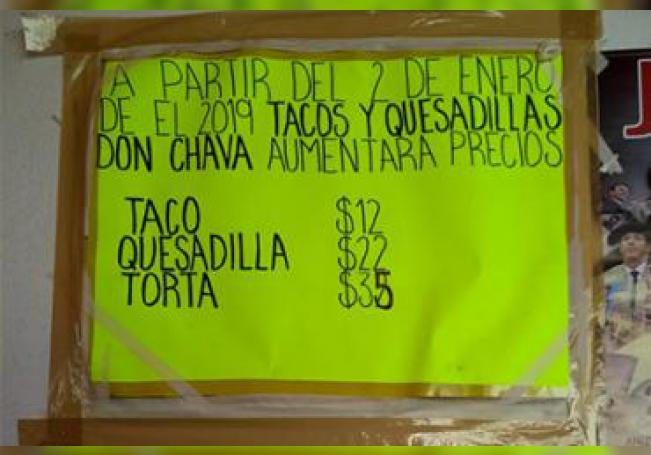 A PARTIR DEL 2 DE ENERO
DE EL 2019 TACOS Y QUESADILLAS
DON CHAVA AUMENTARA PRECIOS
TACO $12
QUESADILLA $22
TORTA $35
J